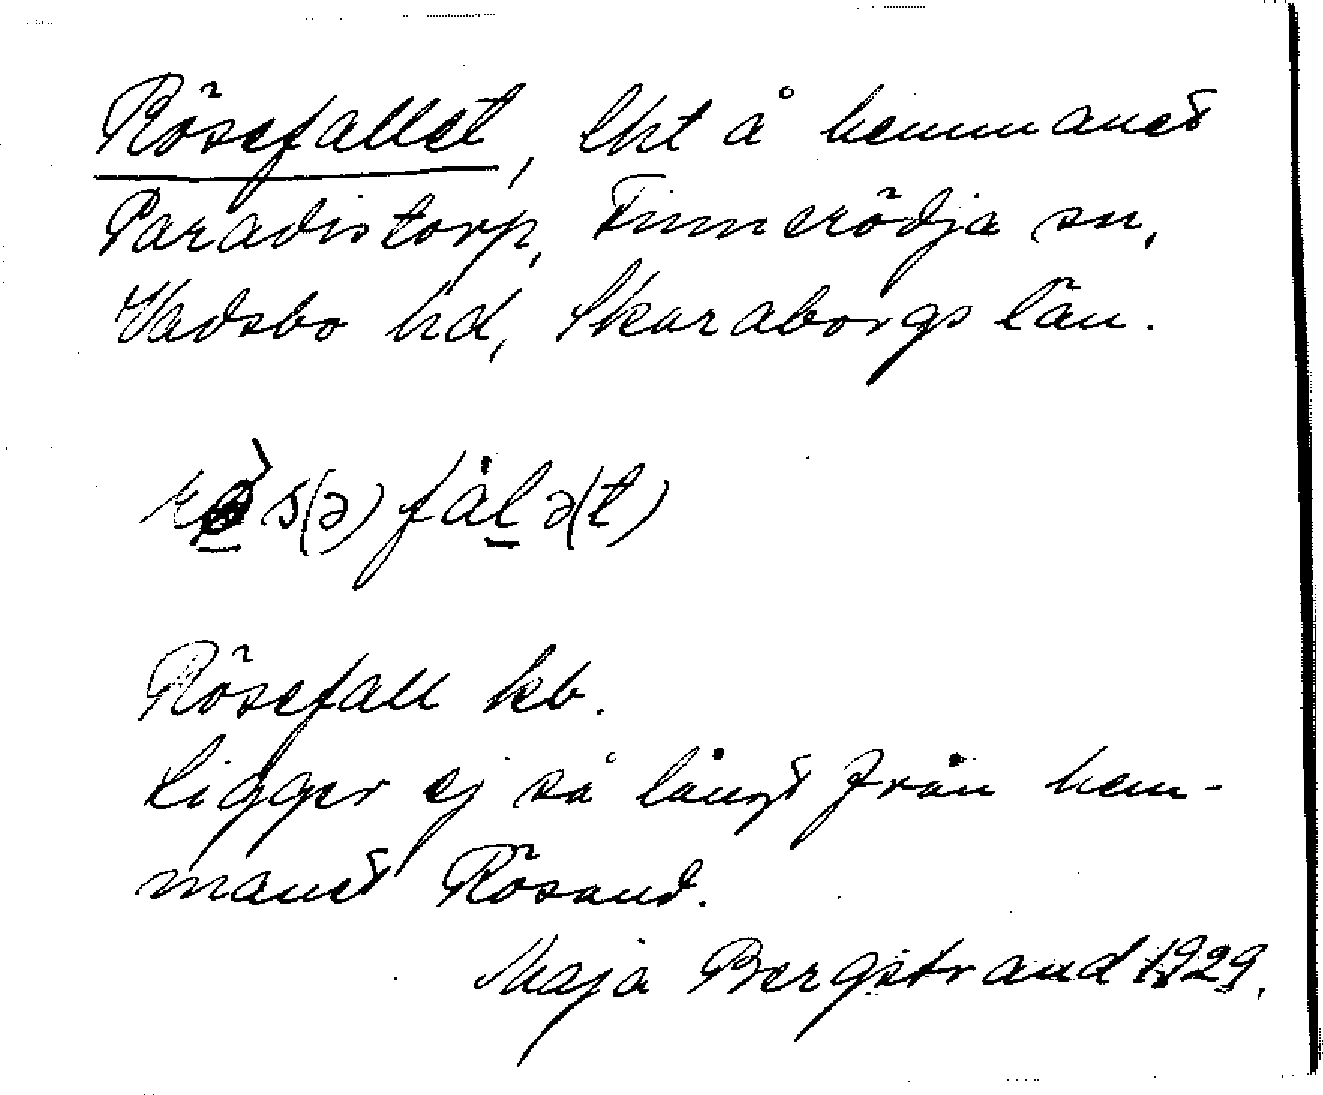 Rösefallet, lht å hemmanet
Paradistorp, Finnerödja sn,
Vadsbo hd, Skaraborgs län.
s(ə)fàlə(t)
Rösefall kb.
Ligger ej så långt från hem-
manet Rösand.
Maja Bergstrand 1929.